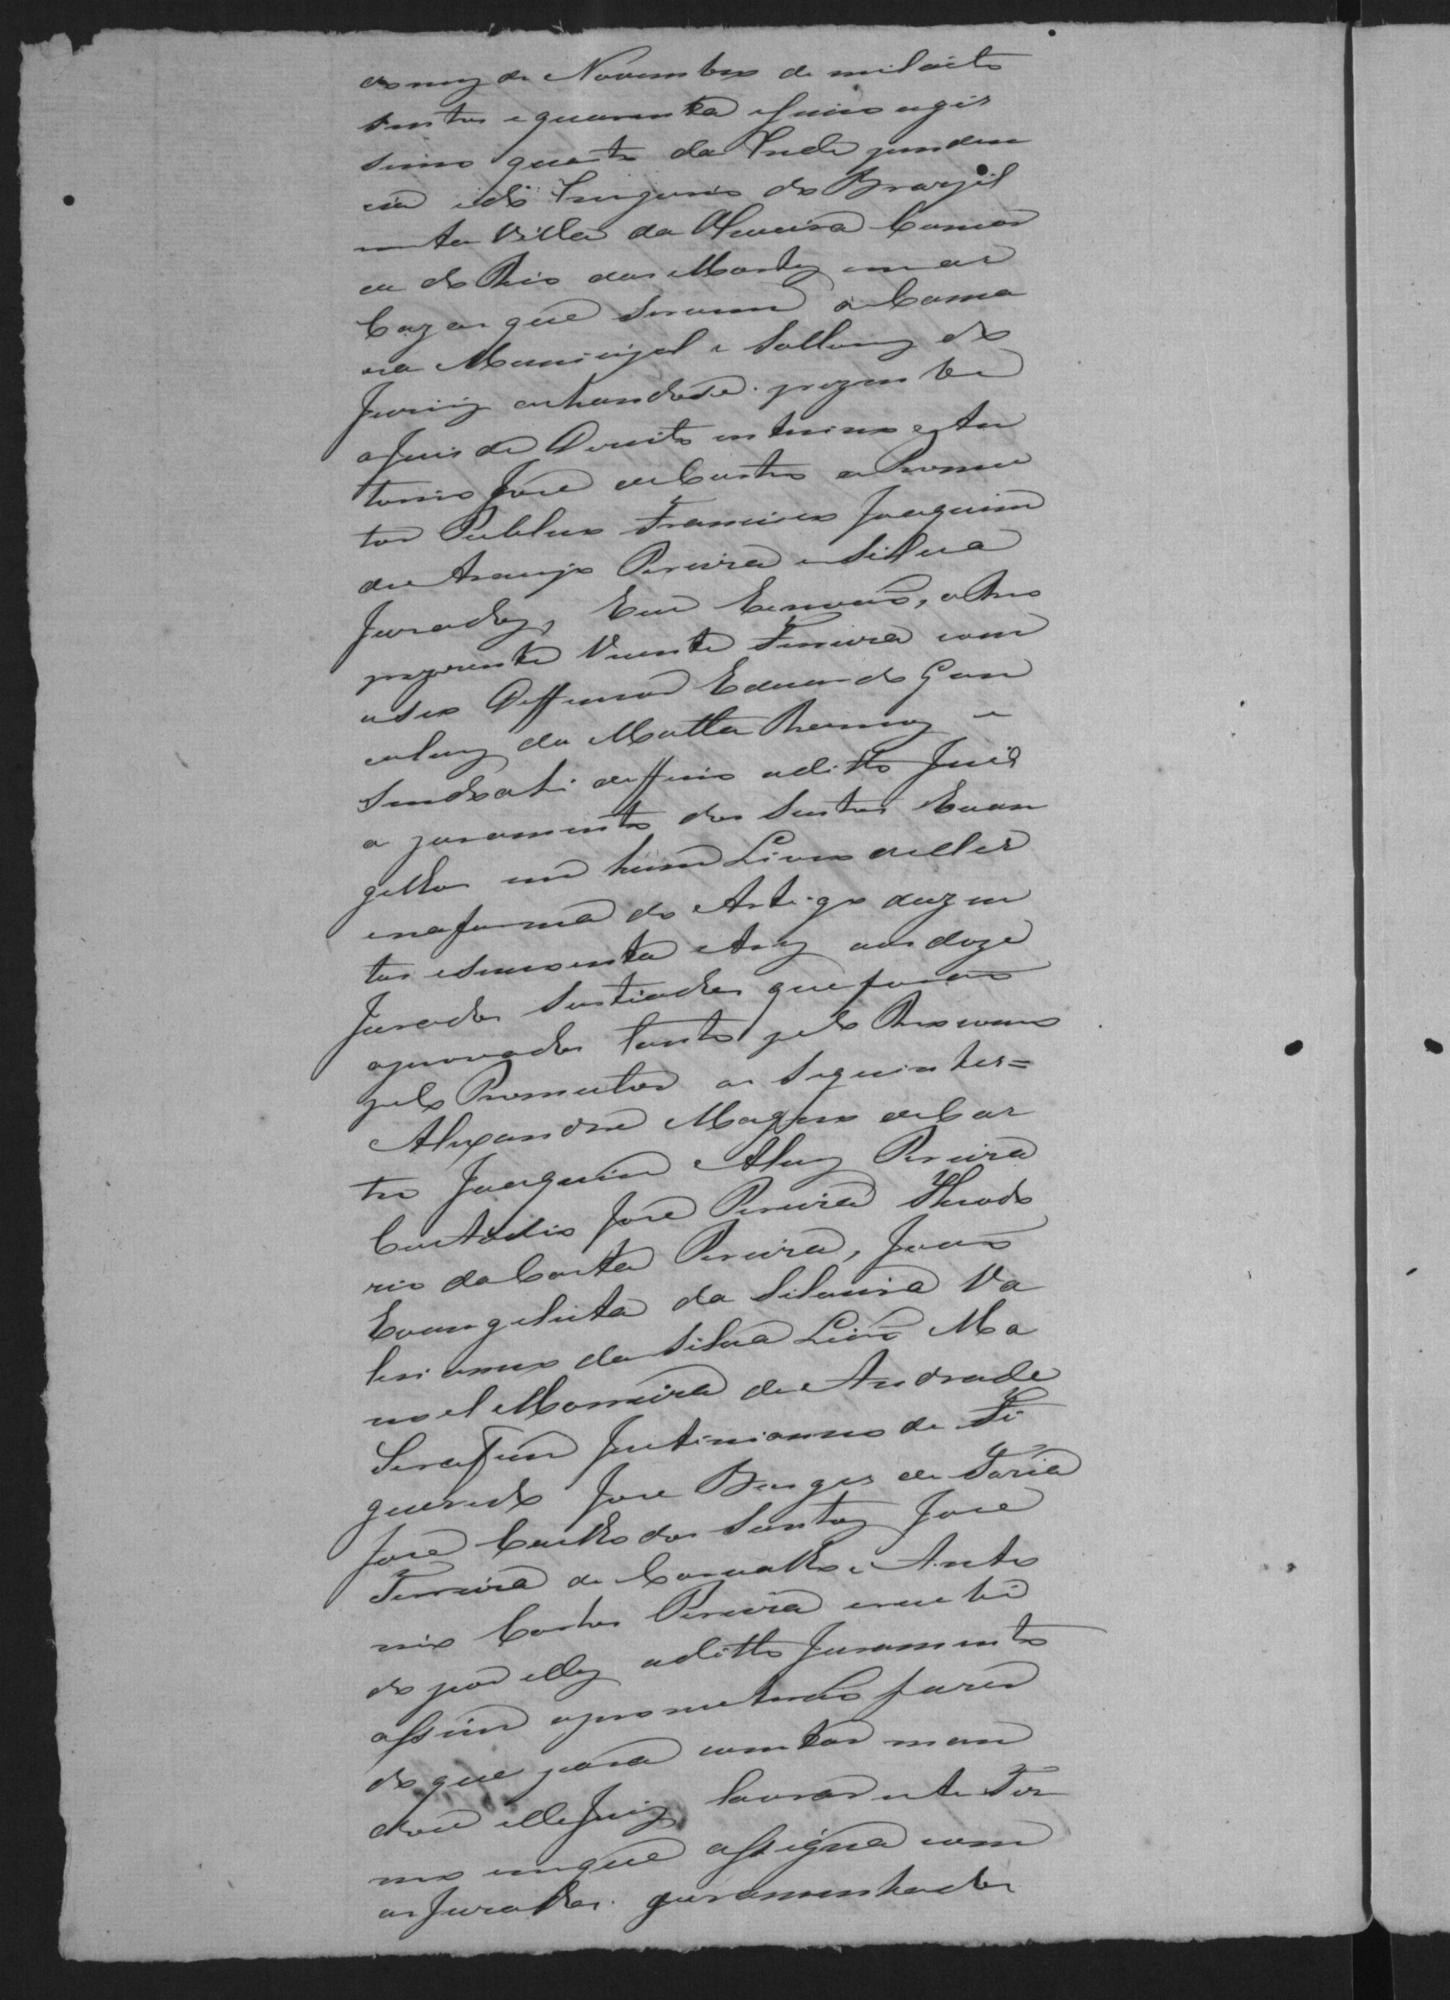 do mez de Novembro de mil oito
sentos e quarenta e sinco vigis
simo quarto da Inde penden
cia e do Imperio do Brazil
nesta Villa da Oliveira Comar
ca do Rio das Mortes em as
Cazas que servem a Cama
ra Municipal e Sallas do
Juris achandose prezente
o Juis de Direito interino An
tonio José de Castro o Promu
tor Publico Francisco Joaquim
de Araujo Pereira e Silva
Jurados, Eu Escrivão, o Reo
prezente Vicente Ferreira com
o seo Deffensor Eduardo Gon
calves da Motta Ramos e
sendo ahi defferio o ditto Juis
o juramento dos Santos Evan
gelhos em hum Livro delles
e na forma do Artigo duzen
tos e sincoenta e tres aos doze
Jurados sortiados que forão
aprovados tanto pelo Reo como
pelo Promutor os Seguintes=
Alexandre Magno de Cas
tro Joaquim Alves Pereira
Custodio José Pereira Theodo
rio da Costa Pereira, João
Evangelista da Silveira Va
leriano da Silva Leão Ma
noel Moreira de Andrade
Serafim Justinianno de Fi
gueredo José Borges de Faria
José Coelho dos Santos José
Ferreira de Carvalho e Anto
nio Carlos Pereira e recebi
do por elles o ditto Juramento
assim o prometerão fazer
do que para constar man
dou elle Juiz lavrar este Ter
mo em que assigna com
os Jurados juramentados